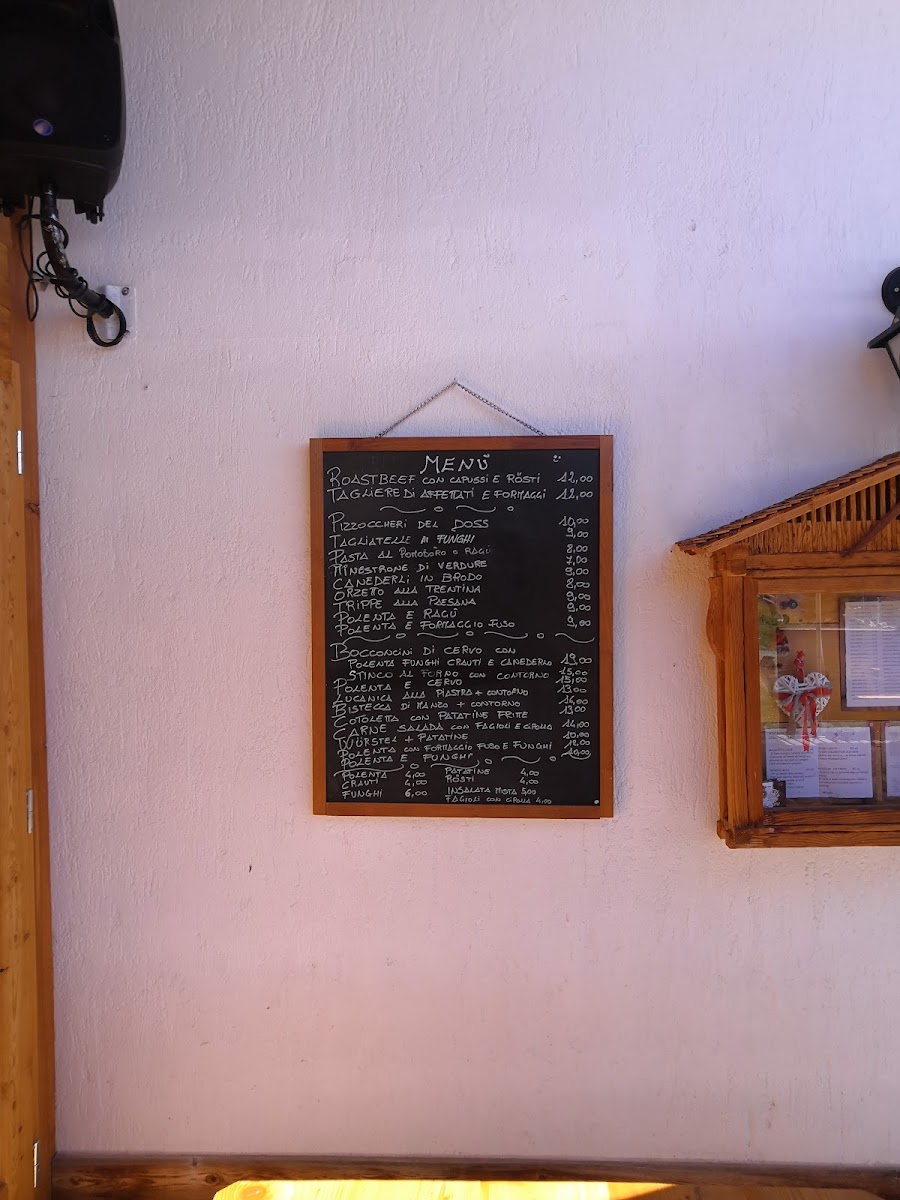 MENÙ
ROASTBEEF CON CAPUSSI E RÖSTI 12,00
TAGLIERE DI AFFETTATI E FORMAGGI 12,00
PIZZOCCHERI DEL DOSS 10,00
TAGLIATELLE AI FUNGHI 9,00
PASTA AL POMODORO O RAGÙ 8,00
MINESTRONE DI VERDURE 7,00
CANEDERLI IN BRODO 9,00
ORZETTO ALLA TRENTINA 8,00
TRIPPE ALLA PAESANA 9,00
POLENTA E RAGÙ 9,00
POLENTA E FORMAGGIO FUSO 9,00
BOCCONCINI DI CERVO CON
POLENTA FUNGHI CRAUTI E CANEDERLO 19,00
STINCO AL FORNO CON CONTORNO 15,00
POLENTA E CERVO 15,00
LUCANICA ALLA PIASTRA + CONTORNO 13,00
BISTECCA DI MANZO + CONTORNO 14,00
COTOLETTA CON PATATINE FRITTE 13,00
CARNE SALADA CON FAGIOLI E CIPOLLA 14,00
WÜRSTEL + PATATINE 10,00
POLENTA CON FORMAGGIO FUSO E FUNGHI 12,00
POLENTA E FUNGHI 10,00
POLENTA 4,00 PATATINE 4,00
CRAUTI 4,00 RÖSTI 4,00
FUNGHI 6,00 INSALATA MISTA 5,00
FAGIOLI CON CIPOLLA 4,00